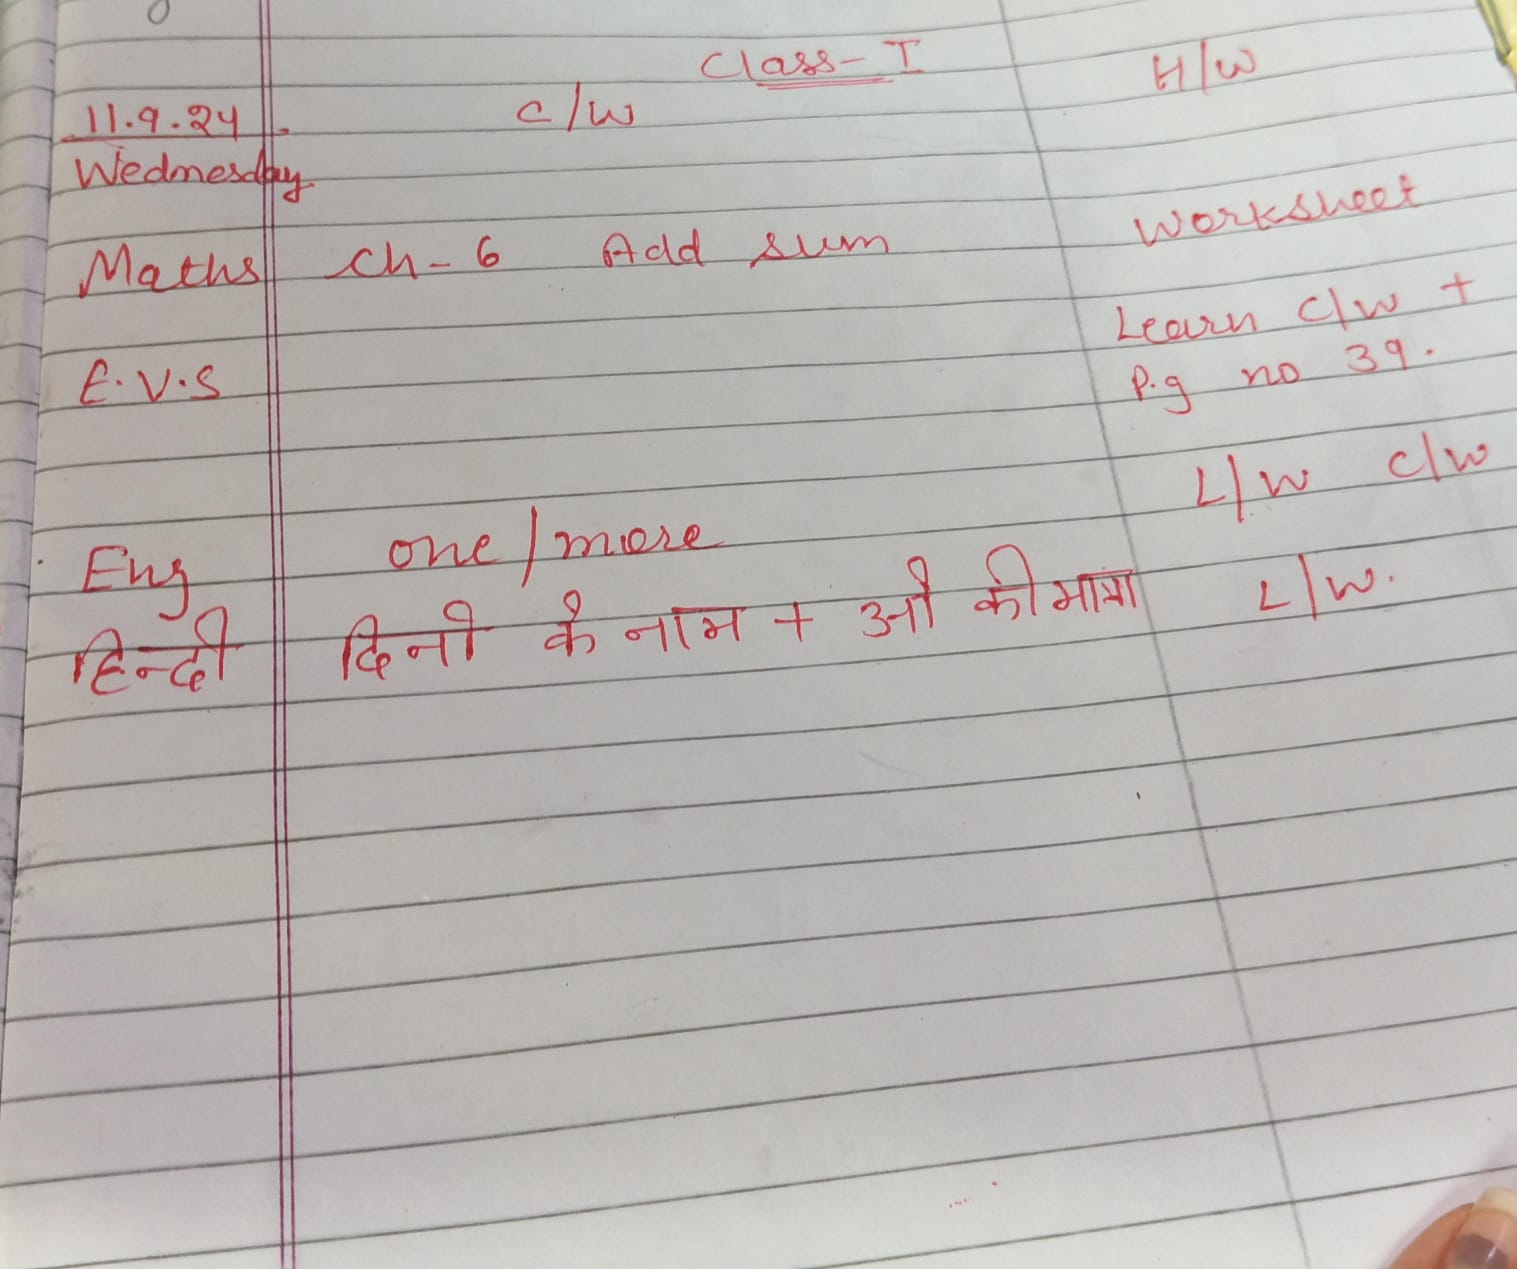 Class - I
11.9.24 C/W H/W
Wednesday
Maths Ch - 6 Add sum Worksheet
E.V.S Learn C/W +
P.g no 39.
Eng one / more L/W C/W
हिन्दी दिनो के नाम + ओ की मात्रा L/W.